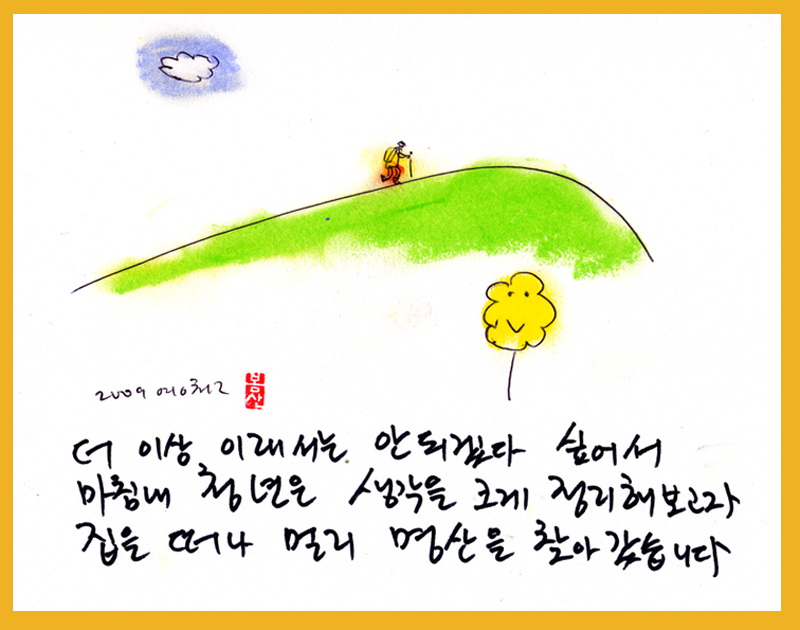 2009
봄산
더 이상 이래서는 안되겠다 싶어서
마침내 청년은 생각을 크게 정리해보고자
집을 떠나 멀리 명산을 찾아 갔습니다